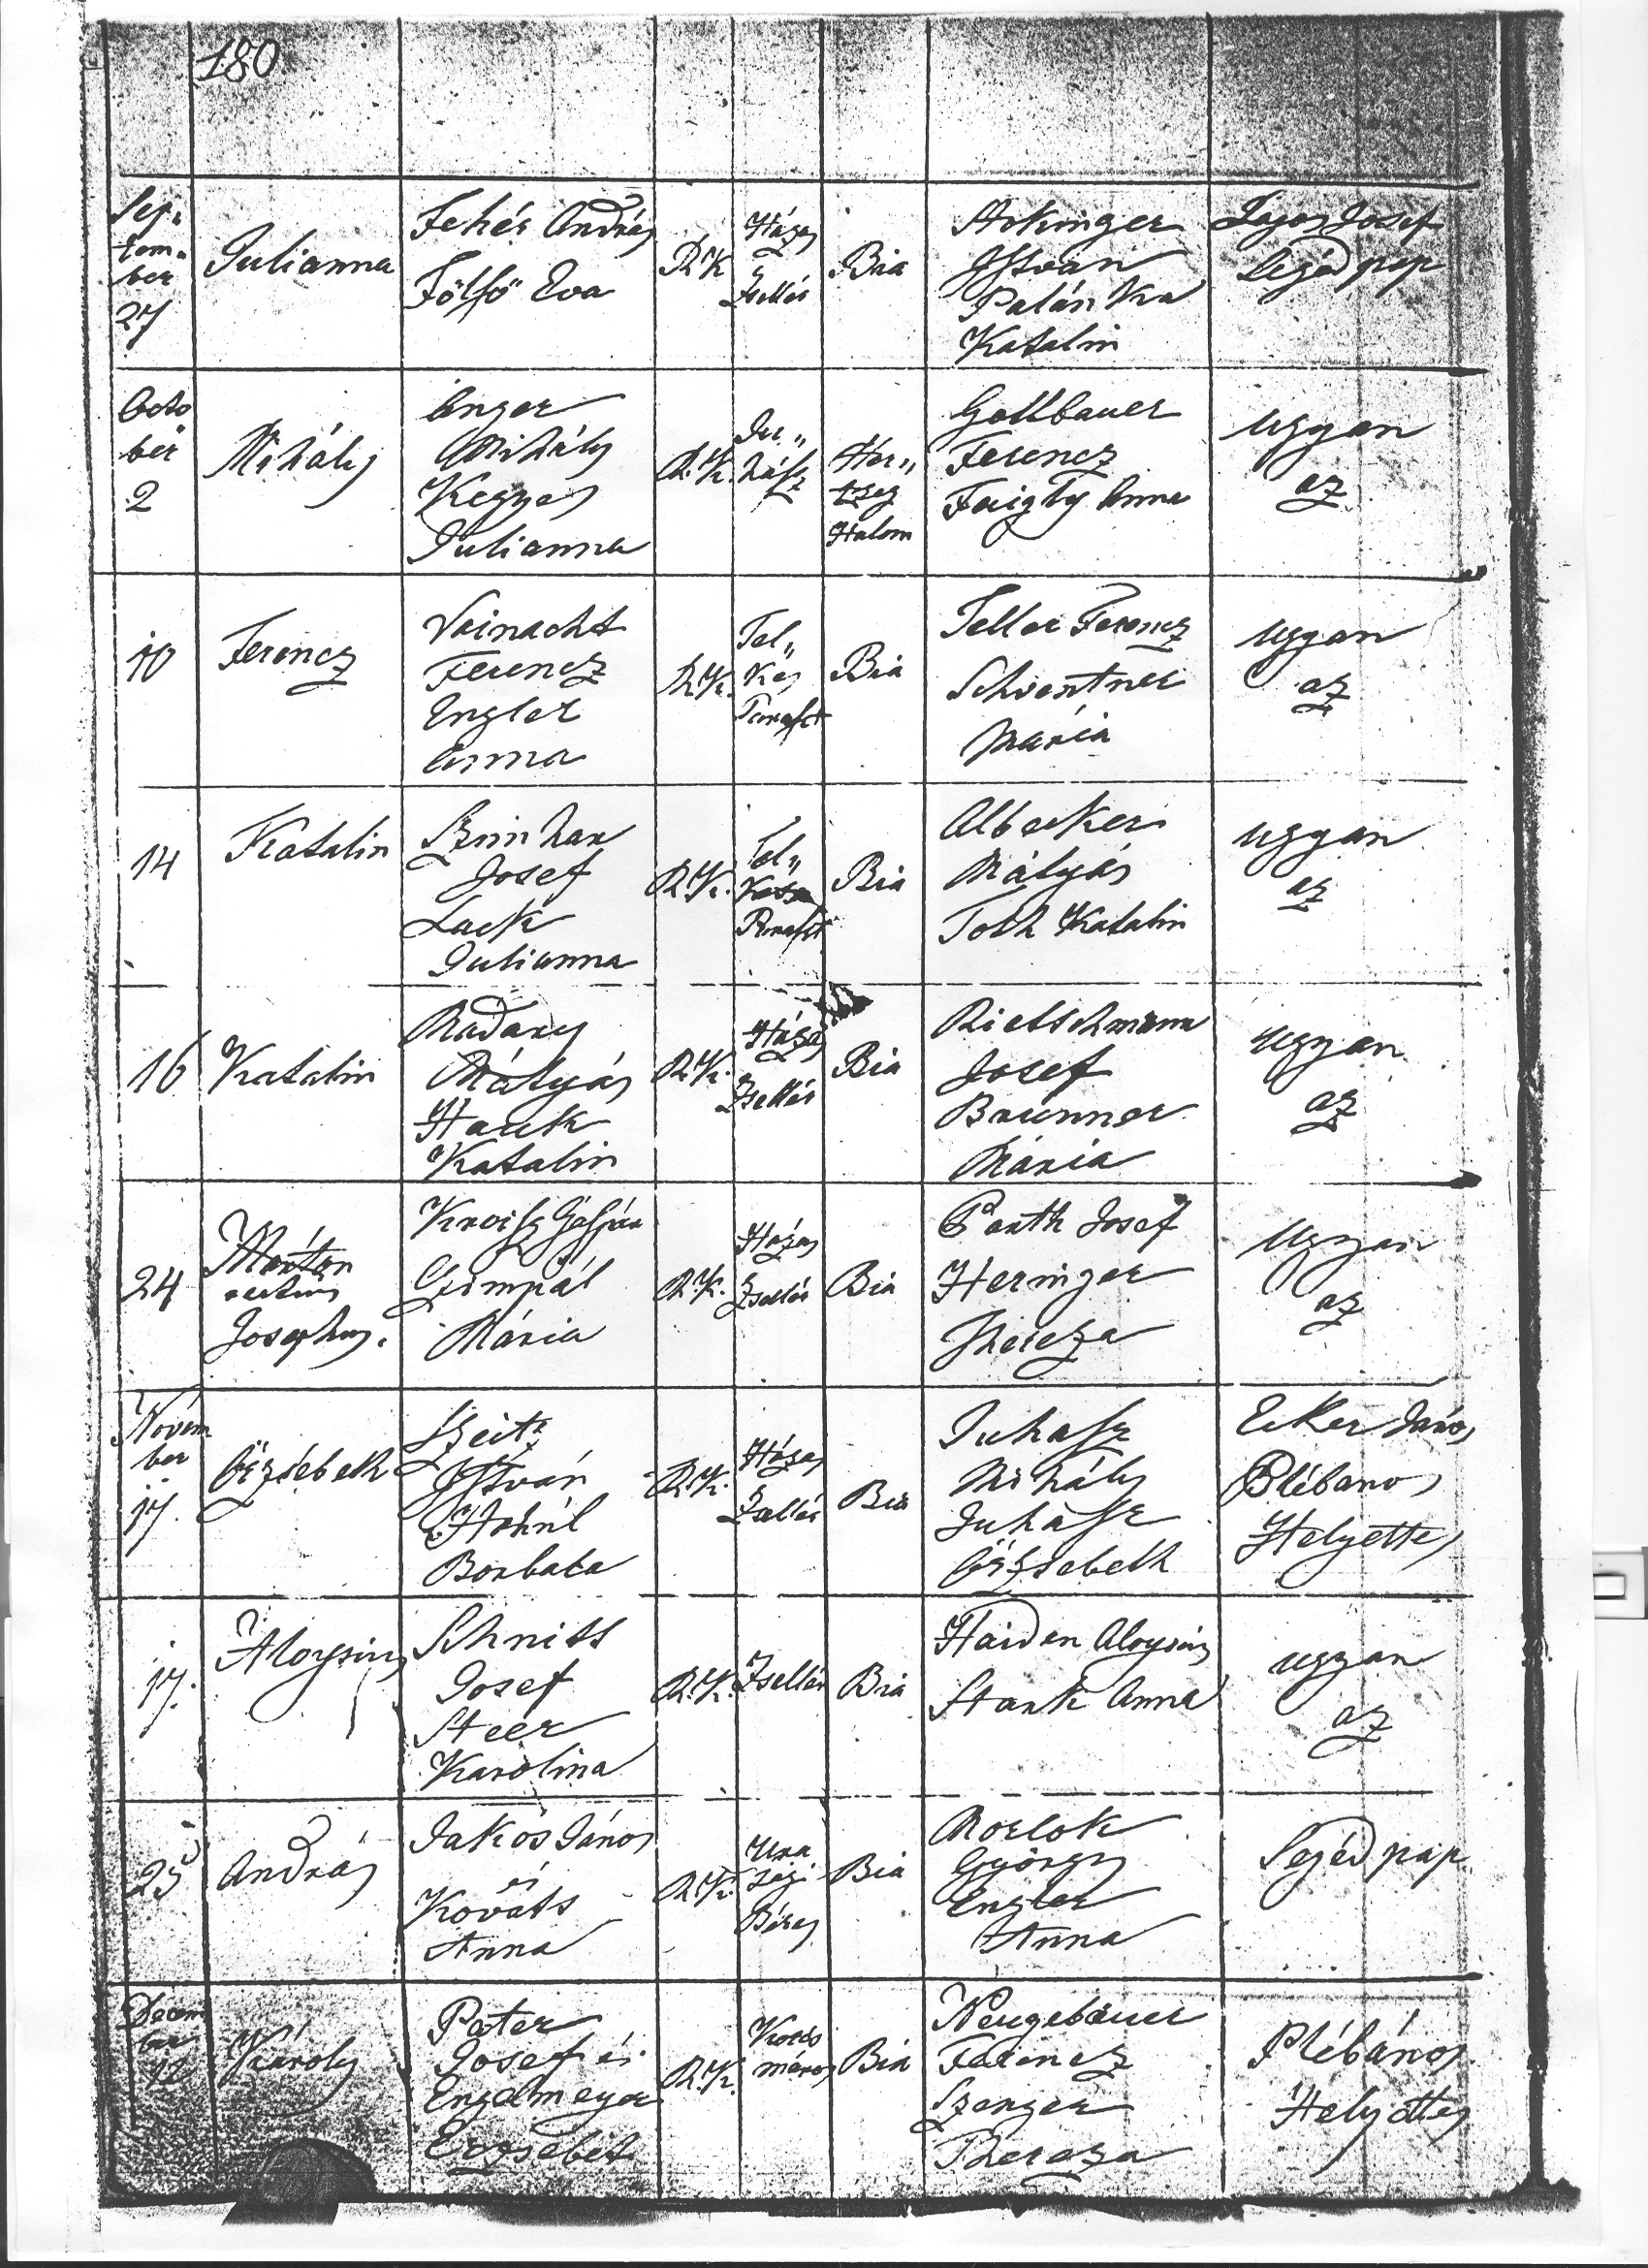 180
Sep„
tem„
ber
27
Julianna
Fehér András
Fölfö Eva
R.K
Házas
Zsellér
Bia
István
Palánka
Katalin
Lajos Josef
Segéd pap
Octo
ber
2
Mihály
Unger
Mihály
Kegyes
Julianna
R.K.
Ju„
hász
Her„
tzeg
Halom
Gollbauer
Ferencz
Anna
ugyan
az
10
Ferencz
Vainacht
Ferencz
Engler
Anna
R.K.
Tel„
kes
Paraszt
Bia
Teller Ferencz
Schventner
Mária
ugyan
az
14
Katalin
Szmihar
Josef
Lack
Julianna
R.K.
Tel„
Paraszt
Bia
Albecker
Mátyás
Toth Katalin
ugyan
az
16
Katalin
Radany
Mátyás
Hauk
Katalin
R.K.
Házas
Zsellér
Bia
Rietschmann
Josef
Brunner
Mária
ugyan
az
24
Márton
rectius
Josephus.
Kroisz Gáspár
Gimpál
Mária
R.K.
Házas
Zsellér
Bia
Parth Josef
Heringer
Thereza
Ugyan
az
Novem
ber
17.
Erzsébeth
Szeitz
István
Borbala
R.K.
Házas
Zsellér
Bia
Juhasz
Mihály
Juhász
Erzsebeth
Ecker János
Plébános
Helyettes
17.
Aloysius
Schniss
Josef
Steer
Karolina
R.K.
Zsellér
Bia
Haiden Aloysius
Stark Anna
ugyan
az
25
András
Jakos János
és
Kováts
Anna
R.K.
Ura
sági
Béres
Bia
Morlok
György
Engler
Anna
Segéd pap
Decem
ber
12
Károly
Pater
Josef és
Engelmeyer
Erzsebet
R.K.
Kots
máros
Bia
Neugebauer
Ferencz
Szenger
Thereza
Plébános
Helyettes